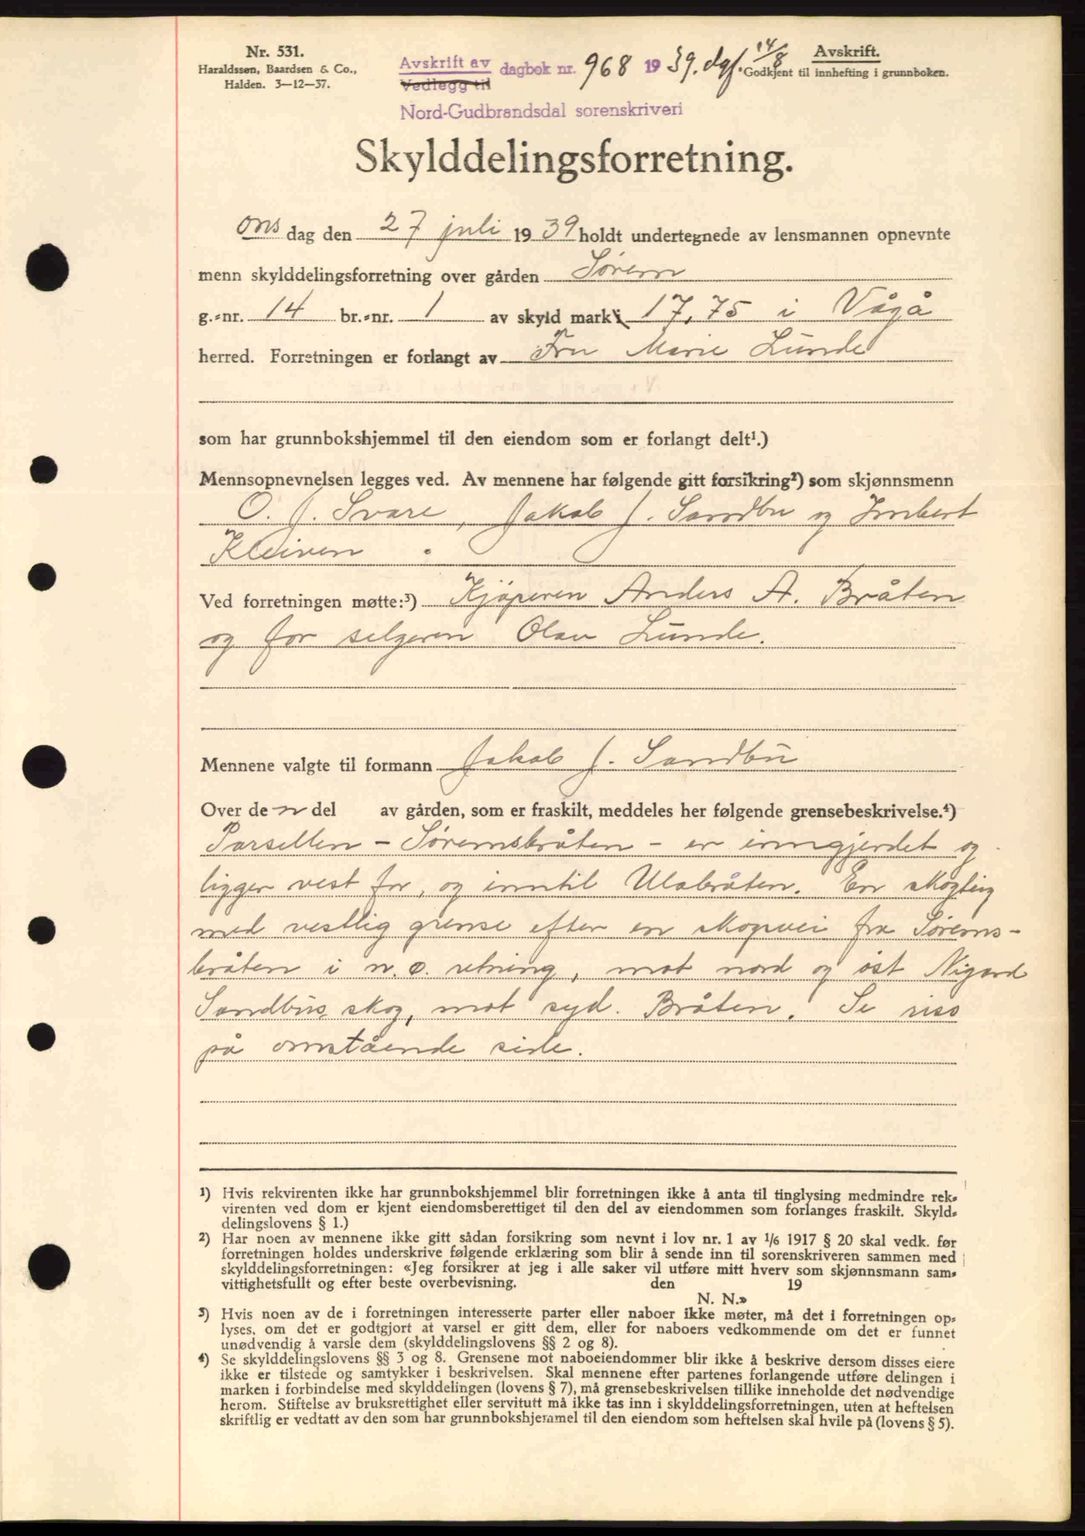 Nr. 531.
Haraldssøn, Baardsen & Co.,
Halden. 3—12—37.
Avskrift av
Vedlegg til
dagbok nr. 968 1939. dgf. 14/8
Nord-Gudbrandsdal sorenskriveri
Avskrift.
Godkjent til innhefting i grunnboken.
Skylddelingsforretning.
ons dag den 27 juli 1939 holdt undertegnede av lensmannen opnevnte
menn skylddelingsforretning over gården Sørem
g.-nr. 14 br.-nr. 1 av skyld mark 17,75 i Vågå
herred. Forretningen er forlangt av Fru Marie Lunde
som har grunnbokshjemmel til den eiendom som er forlangt delt¹.)
Mennsopnevnelsen legges ved. Av mennene har følgende gitt forsikring²) som skjønnsmenn
O. J. Svare, Jakob J. Sandbu og Imbert
Kleiven.
Ved forretningen møtte:³) Kjøperen Anders A. Bråten
og for selgeren Olav Lunde.
Mennene valgte til formann Jakob J. Sandbu
Over den del av gården, som er fraskilt, meddeles her følgende grensebeskrivelse.⁴)
Parsellen - Søremsbråten - er inngjerdet og
ligger vest for, og inntil Ulabråten. En skogteig
med vestlig grense efter en skogvei fra Sørems-
bråten i n.ø. retning, mot nord og øst Nigard
Sandbus skog, mot syd. Bråten. Se riss
på omstående side.
¹) Hvis rekvirenten ikke har grunnbokshjemmel blir forretningen ikke å anta til tinglysing medmindre rek-
virenten ved dom er kjent eiendomsberettiget til den del av eiendommen som forlanges fraskilt. Skyld-
delingslovens § 1.)
²) Har noen av mennene ikke gitt sådan forsikring som nevnt i lov nr. 1 av 1/6 1917 § 20 skal vedk. før
forretningen holdes underskrive følgende erklæring som blir å sende inn til sorenskriveren sammen med
skylddelingsforretningen: «Jeg forsikrer at jeg i alle saker vil utføre mitt hverv som skjønnsmann sam-
vittighetsfullt og efter beste overbevisning. den 19
N. N.»
³) Hvis noen av de i forretningen interesserte parter eller naboer ikke møter, må det i forretningen op-
lyses, om det er godtgjort at varsel er gitt dem, eller for naboers vedkommende om det er funnet
unødvendig å varsle dem (skylddelingslovens §§ 2 og 8).
⁴) Se skylddelingslovens §§ 3 og 8. Grensene mot naboeiendommer blir ikke å beskrive dersom disses eiere
ikke er tilstede og samtykker i beskrivelsen. Skal mennene efter partenes forlangende utføre delingen i
marken i forbindelse med skylddelingen (lovens § 7), må grensebeskrivelsen tillike inneholde det nødvendige
herom. Stiftelse av bruksrettighet eller servitutt må ikke tas inn i skylddelingsforretningen, uten at heftelsen
skriftlig er vedtatt av den som har grunnbokshjemmel til den eiendom som heftelsen skal hvile på (lovens § 5).